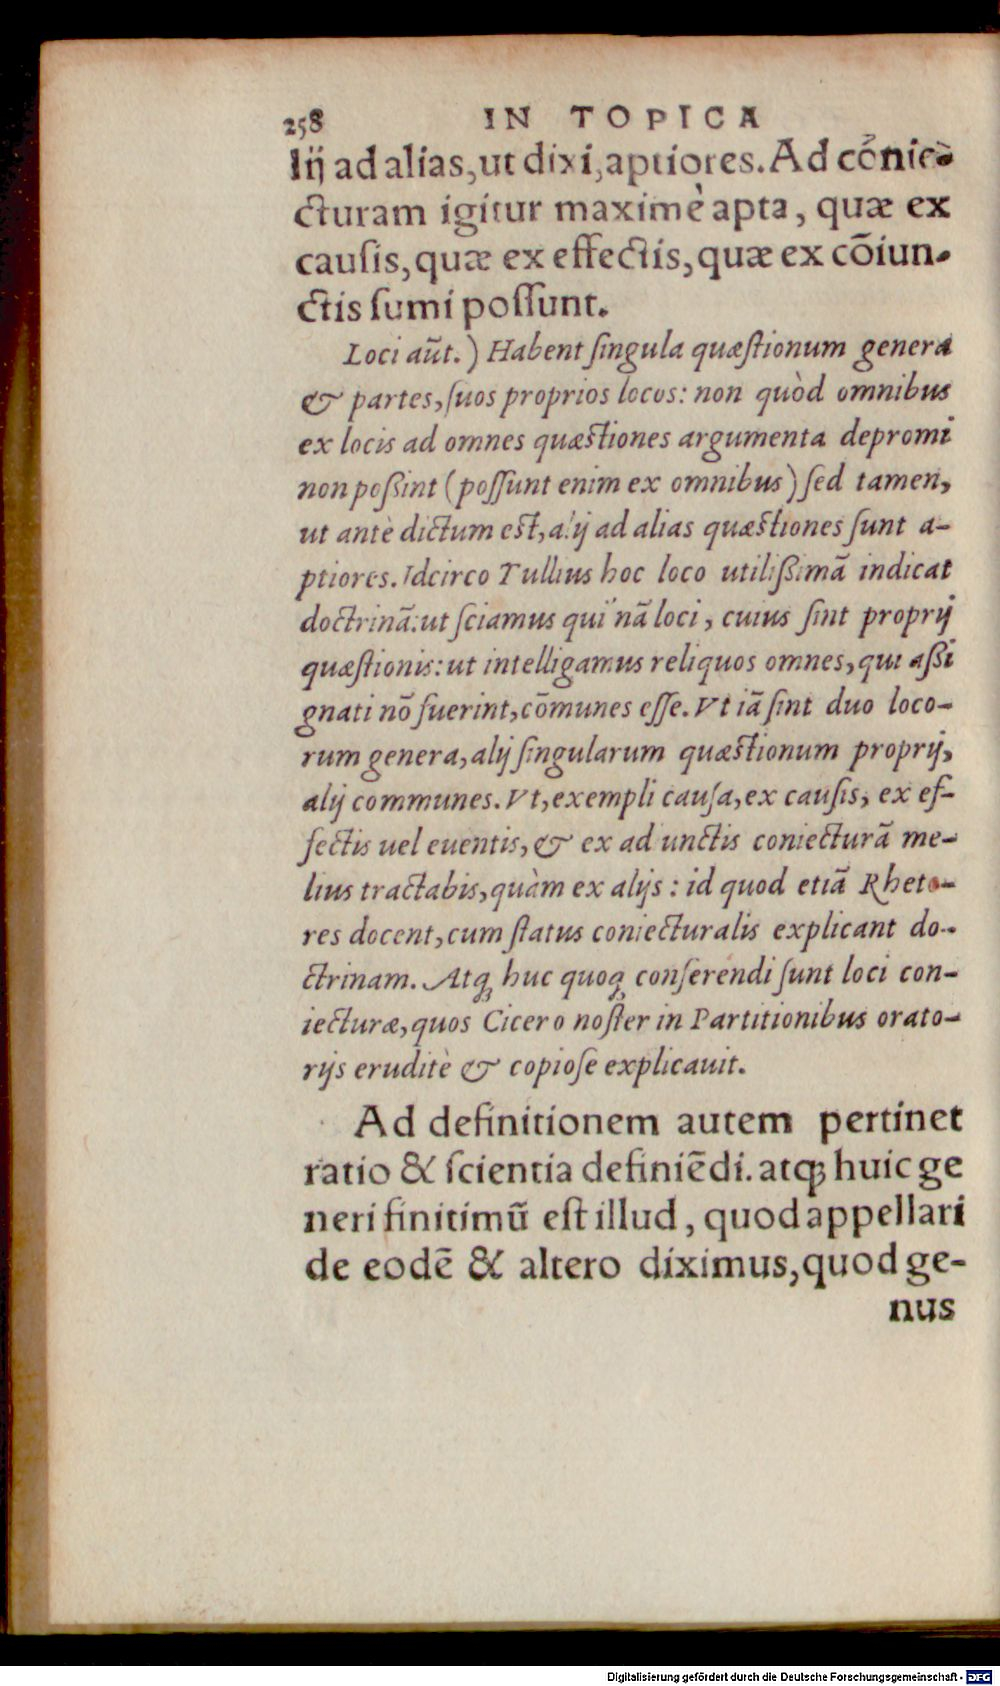 258 IN TOPICA
lij ad alias, ut dixi, aptiores. Ad cõnie-
cturam igitur maximè apta, quæ ex
causis, quæ ex effectis, quæ ex cõiun-
ctis sumi possunt.
Loci aũt.) Habent singula quæstionum genera
& partes, suos proprios locos: non quòd omnibus
ex locis ad omnes quæstiones argumenta depromi
non poßint (possunt enim ex omnibus) sed tamen,
ut antè dictum est, alij ad alias quæstiones sunt a-
ptiores. Idcirco Tullius hoc loco utilißimã indicat
doctrinã: ut sciamus qui nã loci, cuius sint proprij
quæstionis: ut intelligamus reliquos omnes, qui aßi
gnati nõ fuerint, cõmunes esse. Vt iã sint duo loco-
rum genera, alij singularum quæstionum proprij,
alij communes. Vt, exempli causa, ex causis, ex ef-
fectis uel euentis, & ex ad unctis coniecturã me-
lius tractabis, quàm ex alijs: id quod etiã Rheto-
res docent, cum status coniecturalis explicant do-
ctrinam. Atq; huc quoq; conferendi sunt loci con-
iecturæ, quos Cicero noster in Partitionibus orato-
rijs eruditè & copiose explicauit.
Ad definitionem autem pertinet
ratio & scientia definiẽdi. atq; huic ge
neri finitimũ est illud, quod appellari
de eodẽ & altero diximus, quod ge-
nus
Digitalisierung gefördert durch die Deutsche Forschungsgemeinschaft - DFG